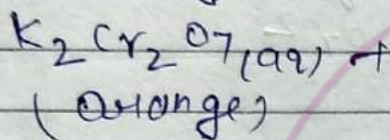 K2Cr2O7(aq) +
(Orange)